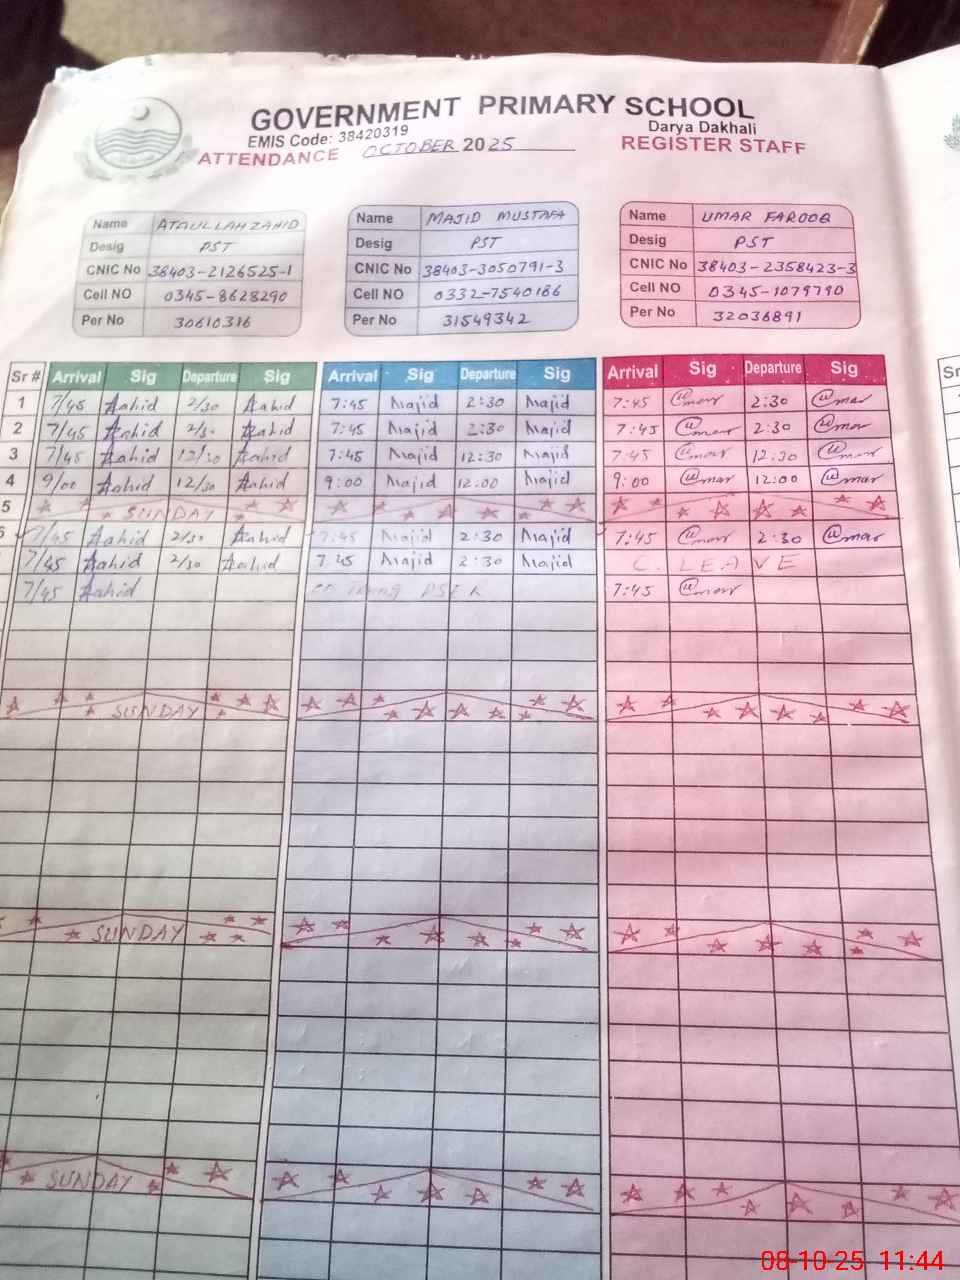 GOVERNMENT PRIMARY SCHOOL
EMIS Code: 38420319 Darya Dakhali
ATTENDANCE OCTOBER 2025 REGISTER STAFF
Name ATAULLAH ZAHID Name MAJID MUSTAFA Name UMAR FAROOQ
Desig PST Desig PST Desig PST
CNIC No 38403-2126525-1 CNIC No 38403-3050791-3 CNIC No 38403-2358423-3
Cell NO 0345-8628290 Cell NO 0332-7540186 Cell NO 0345-1079790
Per No 30610316 Per No 31549342 Per No 32036891
Sr # Arrival Sig Departure Sig Arrival Sig Departure Sig Arrival Sig Departure Sig Sr
1 7/45 Zahid 2/30 Zahid 7:45 Majid 2:30 Majid 7:45 Umar 2:30 Umar
2 7/45 Zahid 2/30 Zahid 7:45 Majid 2:30 Majid 7:45 Umar 2:30 Umar
3 7/45 Zahid 12/30 Zahid 7:45 Majid 12:30 Majid 7:45 Umar 12:30 Umar
4 9/00 Zahid 12/30 Zahid 9:00 Majid 12:00 Majid 9:00 Umar 12:00 Umar
5 SUNDAY
6 7/45 Zahid 2/30 Zahid 7:45 Majid 2:30 Majid 7:45 Umar 2:30 Umar
7/45 Zahid 2/30 Zahid 7:45 Majid 2:30 Majid C. LEAVE
7/45 Zahid on PSER 7:45 Umar
SUNDAY
SUNDAY
SUNDAY
08-10-25 11:44